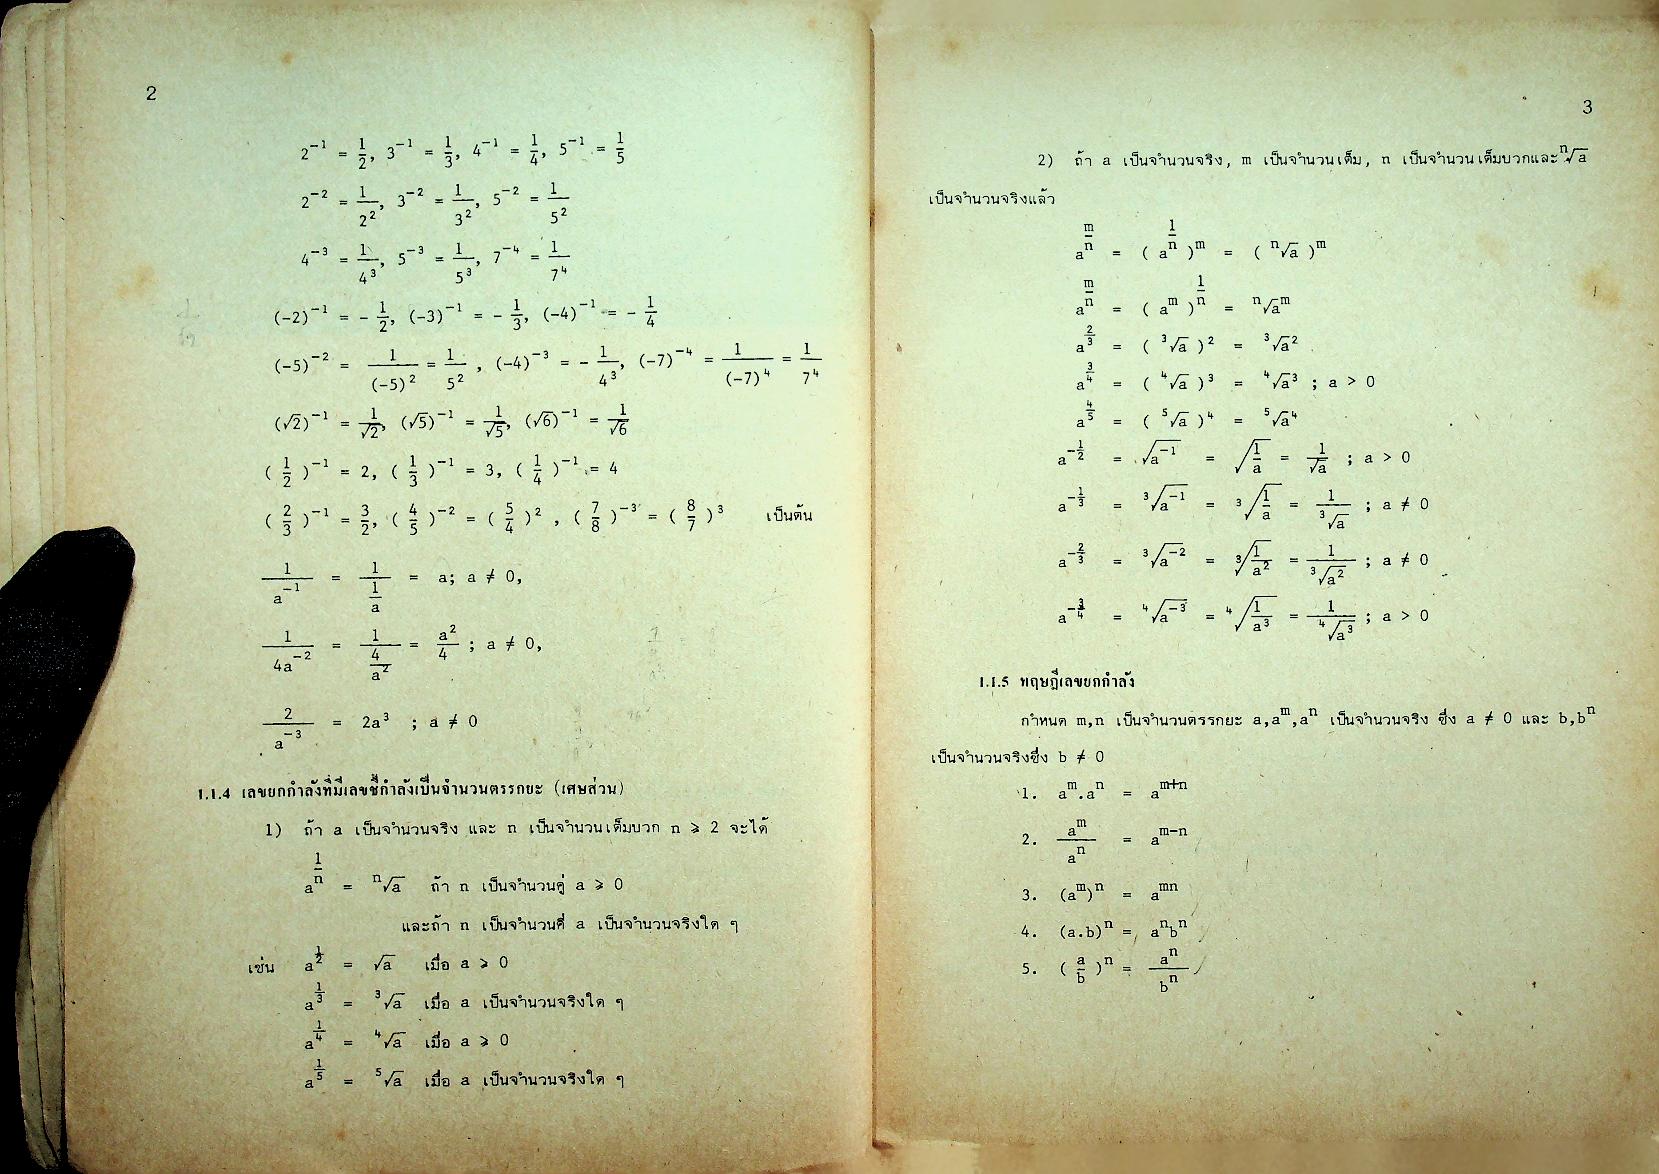 2
2⁻¹ = 1/2, 3⁻¹ = 1/3, 4⁻¹ = 1/4, 5⁻¹ = 1/5
2⁻² = 1/2², 3⁻² = 1/3², 5⁻² = 1/5²
4⁻³ = 1/4³, 5⁻³ = 1/5³, 7⁻⁴ = 1/7⁴
(-2)⁻¹ = - 1/2, (-3)⁻¹ = - 1/3, (-4)⁻¹ = - 1/4
(-5)⁻² = 1/(-5)² = 1/5² , (-4)⁻³ = - 1/4³, (-7)⁻⁴ = 1/(-7)⁴ = 1/7⁴
(√2)⁻¹ = 1/√2, (√5)⁻¹ = 1/√5, (√6)⁻¹ = 1/√6
(1/2)⁻¹ = 2, (1/3)⁻¹ = 3, (1/4)⁻¹ = 4
(2/3)⁻¹ = 3/2, (4/5)⁻² = (5/4)² , (7/8)⁻³ = (8/7)³ เป็นต้น
1/a⁻¹ = 1/(1/a) = a; a ≠ 0,
1/4a⁻² = 1/(4/a²) = a²/4 ; a ≠ 0,
2/a⁻³ = 2a³ ; a ≠ 0
1.1.4 เลขยกกำลังที่มีเลขชี้กำลังเป็นจำนวนตรรกยะ (เศษส่วน)
1) ถ้า a เป็นจำนวนจริง และ n เป็นจำนวนเต็มบวก n ⩾ 2 จะได้
a^(1/n) = ⁿ√a ถ้า n เป็นจำนวนคู่ a ⩾ 0
และถ้า n เป็นจำนวนคี่ a เป็นจำนวนจริงใด ๆ
เช่น a^(1/2) = √a เมื่อ a ⩾ 0
a^(1/3) = ³√a เมื่อ a เป็นจำนวนจริงใด ๆ
a^(1/4) = ⁴√a เมื่อ a ⩾ 0
a^(1/5) = ⁵√a เมื่อ a เป็นจำนวนจริงใด ๆ
3
2) ถ้า a เป็นจำนวนจริง, m เป็นจำนวนเต็ม, n เป็นจำนวนเต็มบวกและ ⁿ√a
เป็นจำนวนจริงแล้ว
a^(m/n) = (a^(1/n))^m = (ⁿ√a)^m
a^(m/n) = (a^m)^(1/n) = ⁿ√a^m
a^(2/3) = (³√a)² = ³√a²
a^(3/4) = (⁴√a)³ = ⁴√a³ ; a > 0
a^(4/5) = (⁵√a)⁴ = ⁵√a⁴
a^(-1/2) = √a⁻¹ = √(1/a) = 1/√a ; a > 0
a^(-1/3) = ³√a⁻¹ = ³√(1/a) = 1/³√a ; a ≠ 0
a^(-2/3) = ³√a⁻² = ³√(1/a²) = 1/³√a² ; a ≠ 0
a^(-3/4) = ⁴√a⁻³ = ⁴√(1/a³) = 1/⁴√a³ ; a > 0
1.1.5 ทฤษฎีเลขยกกำลัง
กำหนด m,n เป็นจำนวนตรรกยะ a,a^m,a^n เป็นจำนวนจริง ซึ่ง a ≠ 0 และ b,b^n
เป็นจำนวนจริงซึ่ง b ≠ 0
1. a^m.a^n = a^(m+n)
2. a^m/a^n = a^(m-n)
3. (a^m)^n = a^(mn)
4. (a.b)^n = a^n b^n
5. (a/b)^n = a^n/b^n